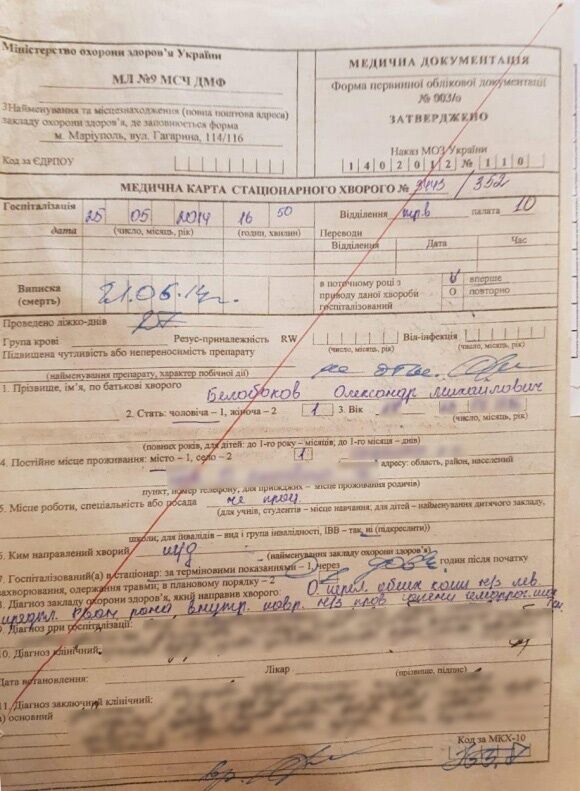 Міністерство охорони здоров'я України
МЛ №9 МСЧ ДМФ
Найменування та місцезнаходження (повна поштова адреса)
закладу охорони здоров'я, де заповнюється форма
м. Маріуполь, вул. Гагарина, 114/116
Код за ЄДРПОУ
МЕДИЧНА ДОКУМЕНТАЦІЯ
Форма первинної облікової документації
№ 003/о
ЗАТВЕРДЖЕНО
Наказ МОЗ України
14 02 2012 № 110
МЕДИЧНА КАРТА СТАЦІОНАРНОГО ХВОРОГО № /352
Госпіталізація 25 05 2014 16 50 Відділення палата 10
дата (число, місяць, рік) (годин, хвилин) Переводи
Відділення Дата Час
Виписка
(смерть) 21.06.14
в поточному році з
приводу даної хвороби
госпіталізований
V вперше
О повторно
Проведено ліжко-днів 27
Група крові Резус-приналежність RW Віл-інфекція
(число, місяць, рік) (число, місяць, рік)
Підвищена чутливість або непереносимість препарату
(найменування препарату, характер побічної дії)
1. Прізвище, ім'я, по батькові хворого Белобоков Олександр Михайлович
2. Стать: чоловіча – 1, жіноча – 2 1 3. Вік
(число, місяць, рік)
(повних років, для дітей: до 1-го року – місяців; до 1-го місяця – днів)
4. Постійне місце проживання: місто – 1, село – 2 1
адресу: область, район, населений
пункт, номер телефону, для приїжджих – місце проживання родичів)
5. Місце роботи, спеціальність або посада не прац
(для учнів, студентів – місце навчання; для дітей – найменування дитячого закладу,
школи; для інвалідів – вид і група інвалідності, ІВВ – так, ні (підкреслити))
6. Ким направлений хворий
(найменування закладу охорони здоров'я)
7. Госпіталізований(а) в стаціонар: за терміновими показаннями – 1, через годин після початку
захворювання, одержання травми; в плановому порядку – 2
8. Діагноз закладу охорони здоров'я, який направив хворого
9. Діагноз при госпіталізації
10. Діагноз клінічний
Дата встановлення: Лікар
(прізвище, підпис)
11. Діагноз заключний клінічний:
а) основний
Код за МКХ-10